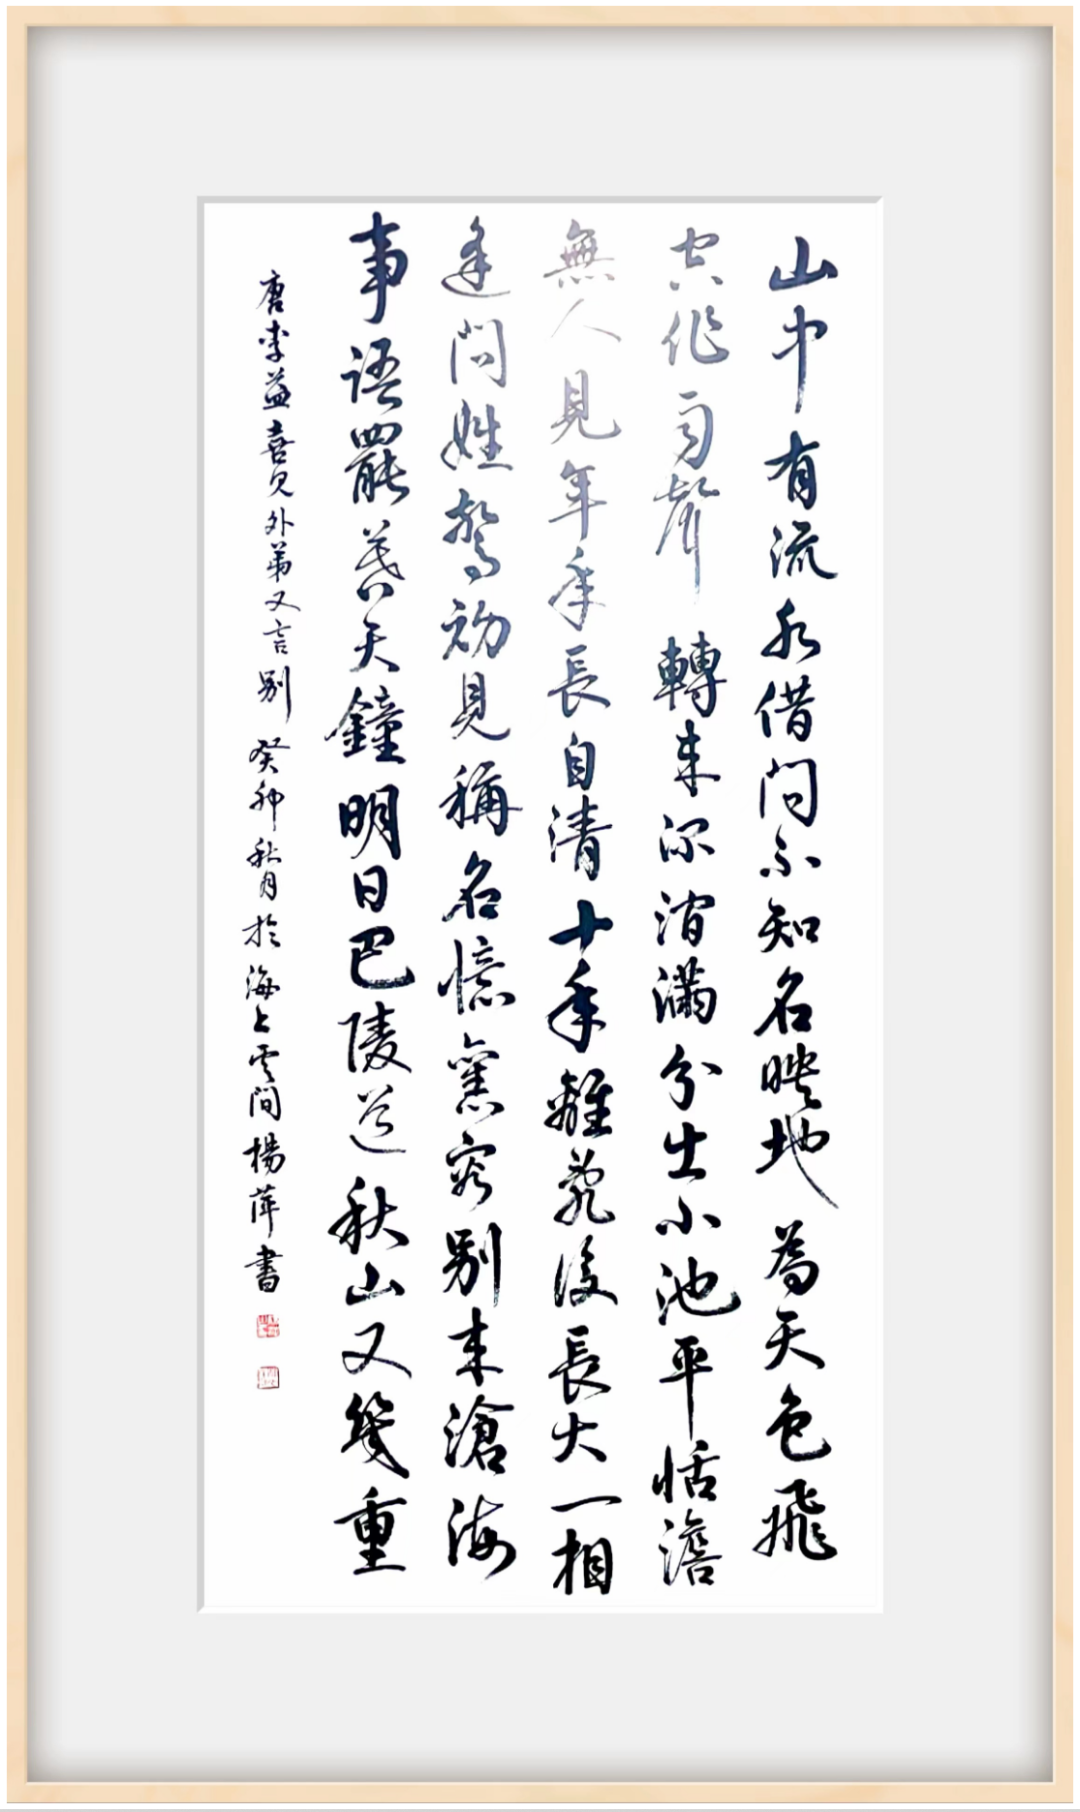 山中有流水借問不知名映地為天色飛
空作雨聲轉來深澗滿分出小池平恬澹
無人見年年長自清十年離亂後長大一相
逢問姓驚初見稱名憶舊容別來滄海
事語罷暮天鐘明日巴陵道秋山又幾重
唐李益喜見外弟又言別癸卯秋月於海上雲間楊萍書